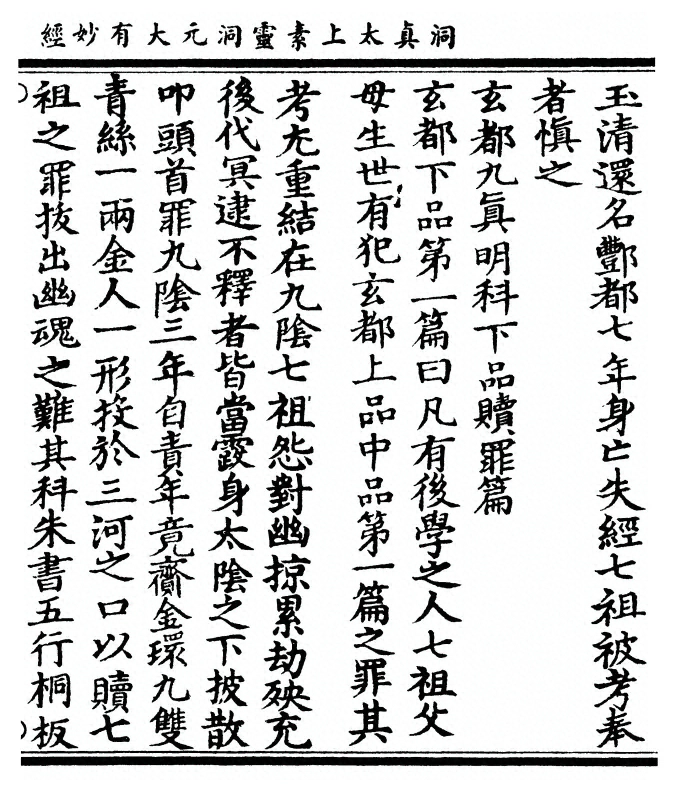 洞真太上素靈洞元大有妙經
玉清還名酆都七年身亡失經七祖被考奉
者慎之
玄都九眞明科下品贖罪篇
玄都下品第一篇曰凡有後學之人七祖父
母生世有犯玄都上品中品第一篇之罪其
考尤重結在九陰七祖怨對幽掠累劫殃充
後代冥逮不釋者皆當露身太陰之下披散
叩頭首罪九陰三年自責年竟齎金環九雙
青絲一兩金人一形投於三河之口以贖七
祖之罪拔出幽魂之難其科朱書五行桐板